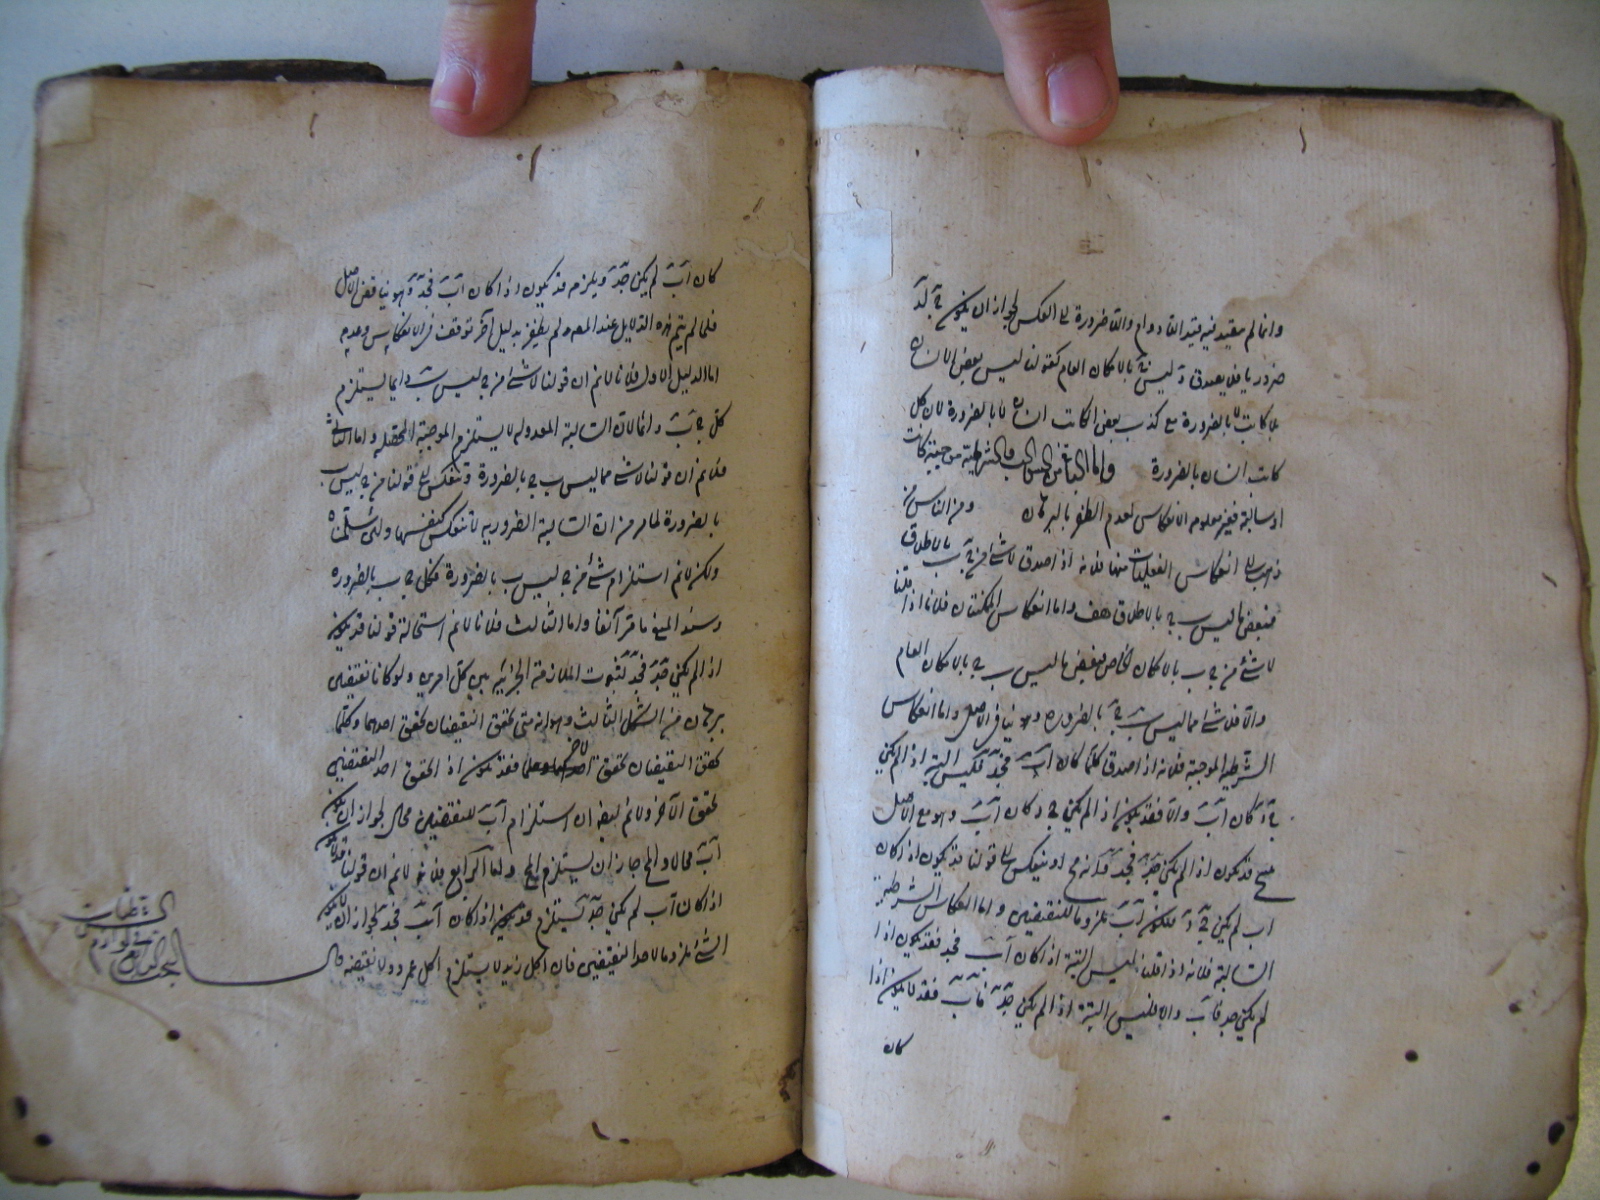 وانما لم يقيد فيه قيد اللادوام واللاضرورة في العكس لجواز ان يكون ج بـ
ضروريا فلا يصدق ليس بالامكان العام كقولنا ليس بعض الانسان
بكاتب لا بالضرورة مع كذب بعض الكاتب انسان لا بالضرورة لان كل
كاتب انسان بالضرورة واما السالبة والشرطية موجبة كانت
او سالبة فغير معلومة الانعكاس لعدم الظفر بالبرهان ومن الناس من
ذهب الى انعكاس الفعليات منها فلانه اذا صدق لا شئ من ج ب بالاطلاق
فبعض ما ليس ب ج بالاطلاق هف واما انعكاس الممكنتان فلانا اذا قلنا
لا شئ من ج ب بالامكان الخاص فبعض ما ليس ب ج بالامكان العام
والا فلا شئ مما ليس ب ج بالضرورة وهو ينافي الاصل واما انعكاس
الشرطية الموجبة فلانه اذا صدق كلما كان اب فجد فليس البتة اذا لم يكن
جد كان اب والا فقد يكون اذا لم يكن جد كان اب وهو مع الاصل
ينتج قد يكون اذا لم يكن جد فجد وانه مح او ينعكس الى قولنا قد يكون اذا كان
اب لم يكن جد فيكون اب ملزوما للنقيضين واما انعكاس الشرطية
السالبة فلانه اذا قلنا ليس البتة اذا كان اب فجد فقد يكون اذا
لم يكن جد فاب والا فليس البتة اذا لم يكن جد فاب فقد لا يكون اذا
كان
كان اب لم يكن جد ويلزمه قد يكون اذا كان اب فجد وهو يناقض الاصل
فلما لم يتم هذه الدلايل عند المصـ ولم يظفر بدليل آخر توقف في الانعكاس وعدمه
اما الدليل الاول فلانا لا نم ان قولنا لا شئ من ج ليس ب دايما يستلزم
كل ج ب دائما لان السالبة المعدولة لا يستلزم الموجبة المحصلة واما الثاني
فلا نم ان قولنا لا شئ مما ليس ب ج بالضرورة وينعكس الى قولنا من ج ليس ب
بالضرورة لما مر من ان السالبة الضرورية لا تنعكس كنفسها ولئن سلمناه
ولكن لا نم استلزام شئ من ج ليس ب بالضرورة فكل ج ب بالضرورة
وسند المنع ما مر آنفا واما الثالث فلانا لا نم استحالة قولنا قد يكون
اذا لم يكن جد فجد لثبوت الملازمة الجزئية بين كل امرين ولو كانا نقيضين
ببرهان من الشكل الثالث وهو انه متى تحقق النقيضان تحقق احدهما وكلما
تحقق النقيضان تحقق الاخر فقد يكون اذا تحقق احد النقيضين
تحقق الآخر ولا نم ايضا ان استلزام اب للنقيضين محال لجواز ان يكون
اب محالا والمح جاز ان يستلزم المح واما الرابع فلانا لا نم ان قولنا قد لا يكون
اذا كان اب لم يكن جد يستلزم قد يكون اذا كان اب فجد لجواز ان لا يكون
الشئ ملزوما لاحد النقيضين فان اكل زيد لا يستلزم اكل عمرو ولا نقيضه قال
البحث الرابع في لوازم الشرطيات